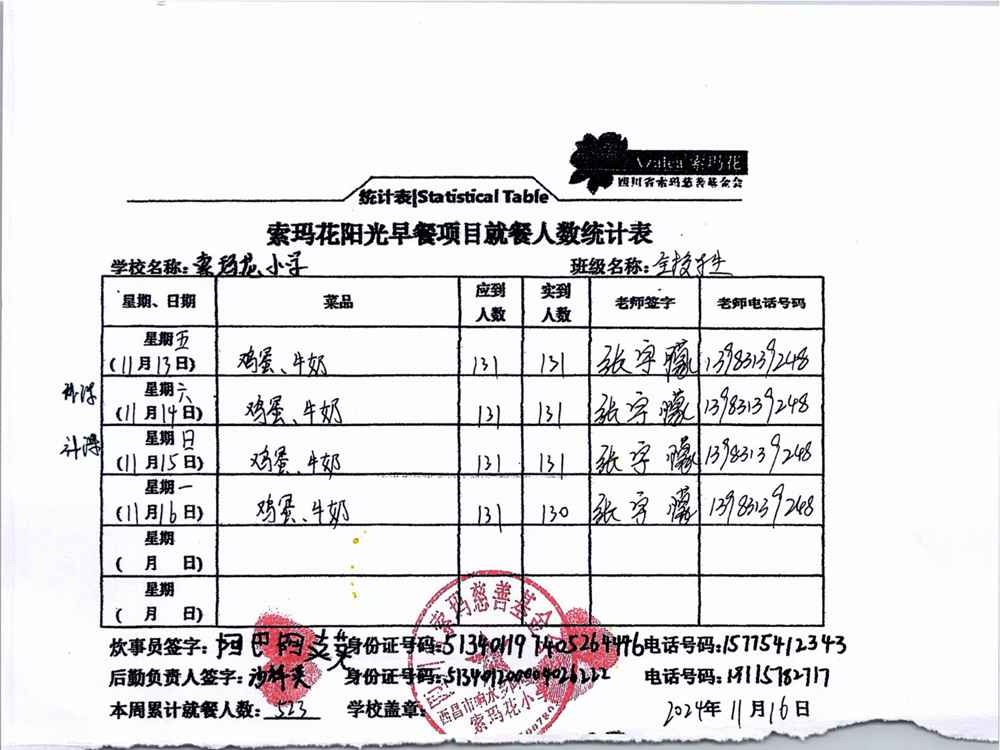 Azalea 索玛花
四川省索玛慈善基金会
统计表|Statistical Table
索玛花阳光早餐项目就餐人数统计表
学校名称：索玛花小学 班级名称：全校学生
星期、日期 菜品 应到人数 实到人数 老师签字 老师电话号码
星期五 (11月13日) 鸡蛋、牛奶 131 131 张字 13983139248
星期六 (11月14日) 鸡蛋、牛奶 131 131 张字 13983139248
星期日 (11月15日) 鸡蛋、牛奶 131 131 张字 13983139248
星期一 (11月16日) 鸡蛋、牛奶 131 130 张字 13983139248
星期 ( 月 日)
星期 ( 月 日)
炊事员签字： 身份证号码： 电话号码：15775412343
后勤负责人签字： 身份证号码： 电话号码：18115782717
本周累计就餐人数：523 学校盖章： 2024年11月16日
索玛慈善基金会
索玛花小学